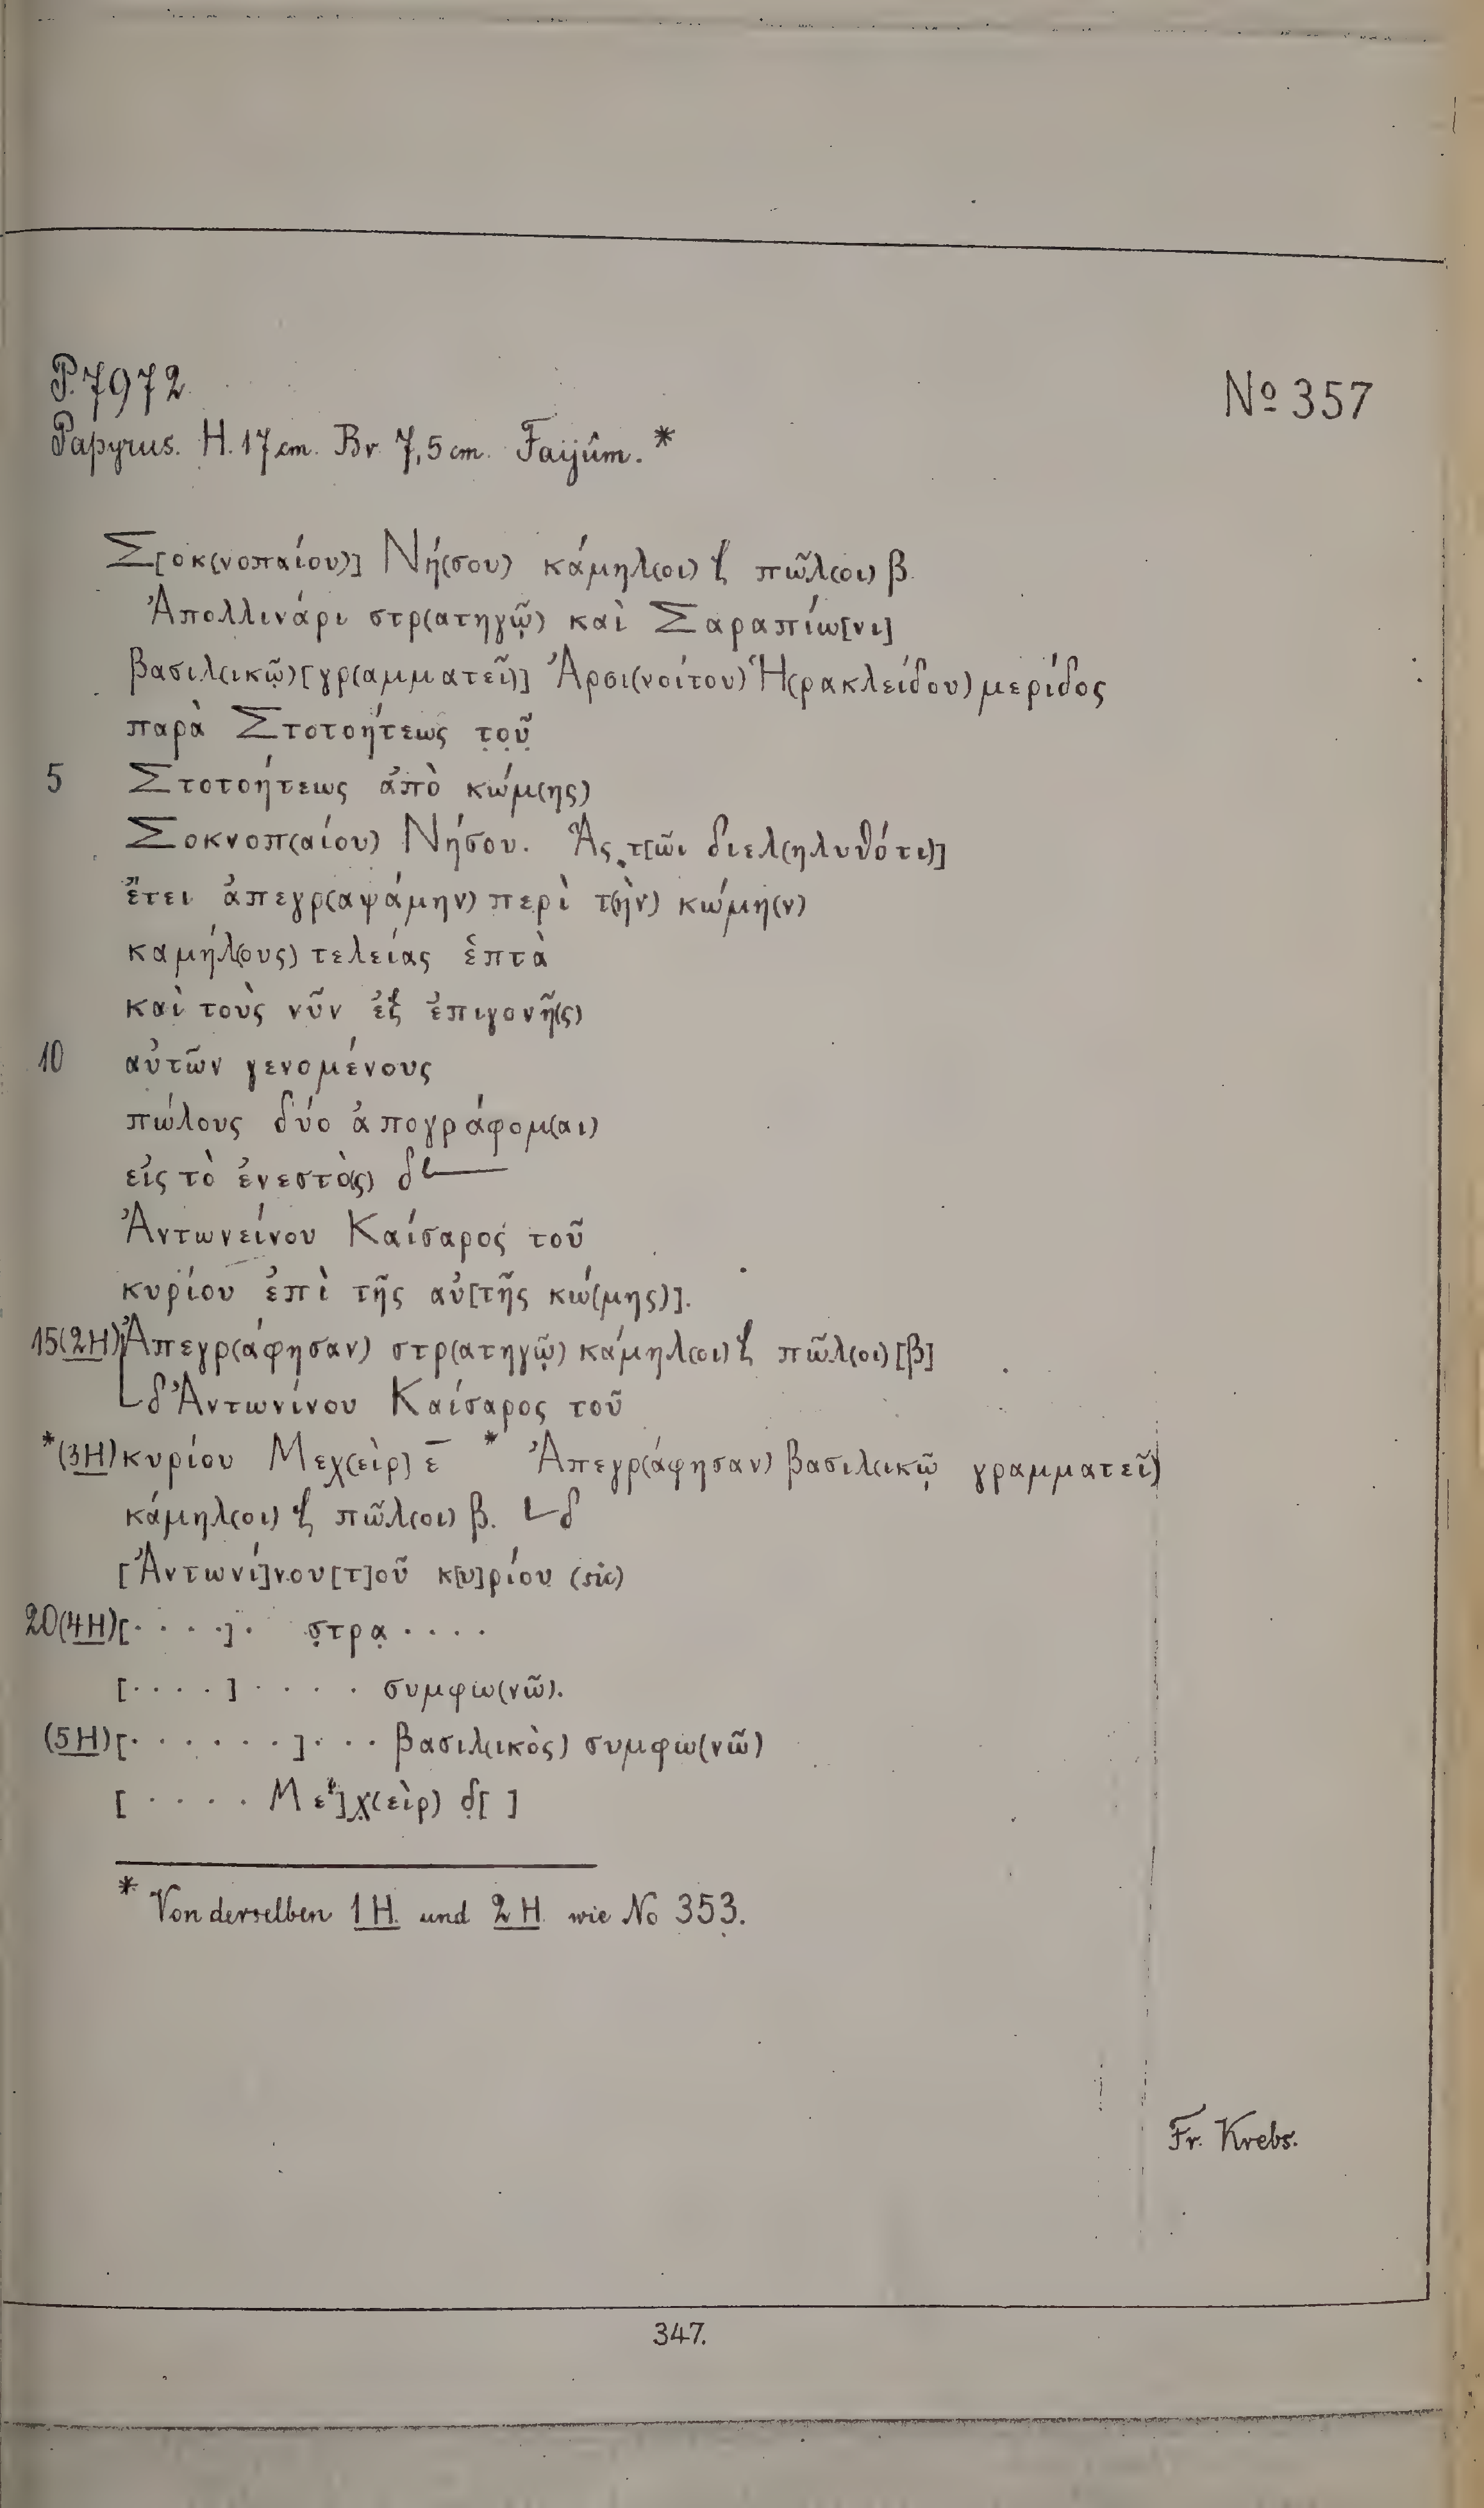 P. 7972
No 357
Papyrus. H. 17 cm. Br. 7,5 cm. Faijûm. *
Σ[οκ(νοπαίου)] Νή(σου) κάμηλ(οι) ζ πῶλ(οι) β.
Ἀπολλινάρι στρ(ατηγῷ) καὶ Σαραπίω[νι]
βασιλ(ικῷ) [γρ(αμματεῖ)] Ἀρσι(νοίτου) Ἡ(ρακλείδου) μερίδος
παρὰ Στοτοήτεως τ̣ο̣ῦ̣
5 Στοτοήτεως ἀπὸ κώμ(ης)
Σοκνοπ(αίου) Νήσου. Ἃς τ̣[ῶι διελ(ηλυθότι)]
ἔτει ἀπεγρ(αψάμην) περὶ τ(ὴν) κώμη(ν)
καμήλ(ους) τελείας ἑπτὰ
καὶ τοὺς νῦν ἐξ ἐπιγονῆ(ς)
10 αὐτῶν γενομένους
πώλους δύο ἀπογράφομ(αι)
εἰς τὸ ἐνεστὸ(ς) δ 𐅹
Ἀντωνείνου Καίσαρος τοῦ
κυρίου ἐπὶ τῆς αὐ[τῆς κώ(μης)].
15 (2H) Ἀπεγρ(άφησαν) στρ(ατηγῷ) κάμηλ(οι) ζ πῶλ(οι) [β]
𐅹 δ Ἀντωνίνου Καίσαρος τοῦ
*(3H) κυρίου Μεχ(εὶρ) ε̄ * Ἀπεγρ(άφησαν) βασιλ(ικῷ γραμματεῖ)
κάμηλ(οι) ζ πῶλ(οι) β. 𐅹 δ
[Ἀντωνί]νου [τ]οῦ κ[υ]ρίου (sic)
20 (4H) [· · · ·] · σ̣τρα̣ · · · ·
[· · · ·] · · · · συμφω(νῶ).
(5H) [· · · · · · ·] · · · βασιλ(ικὸς) συμφω(νῶ)
[ · · · · Με]χ̣(εὶρ) δ̣[ ]
* Von derselben 1 H. und 2 H. wie No 353.
Fr. Krebs.
347.